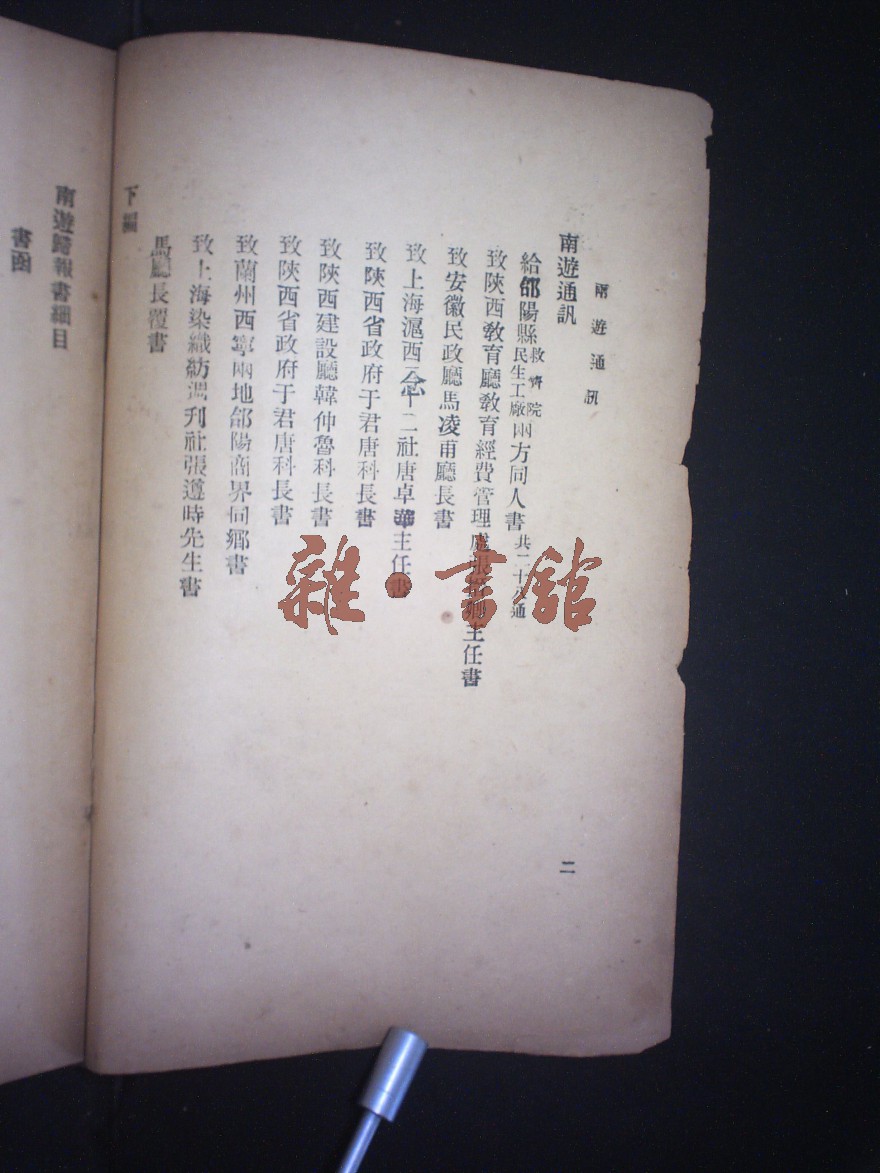 南遊通訊
二
南遊通訊
給郃陽縣救濟院民生工廠兩方同人書共二十八通
致陝西敎育廳敎育經費管理處張卿主任書
致安徽民政廳馬凌甫廳長書
致上海滬西念二社唐卓華主任書
致陝西省政府于君唐科長書
致陝西建設廳韓仲魯科長書
致陝西省政府于君唐科長書
致蘭州西寧兩地郃陽商界同鄉書
致上海染織紡週刊社張遵時先生書
馬廳長覆書
下編
南遊歸報書細目
書函
雜·書館